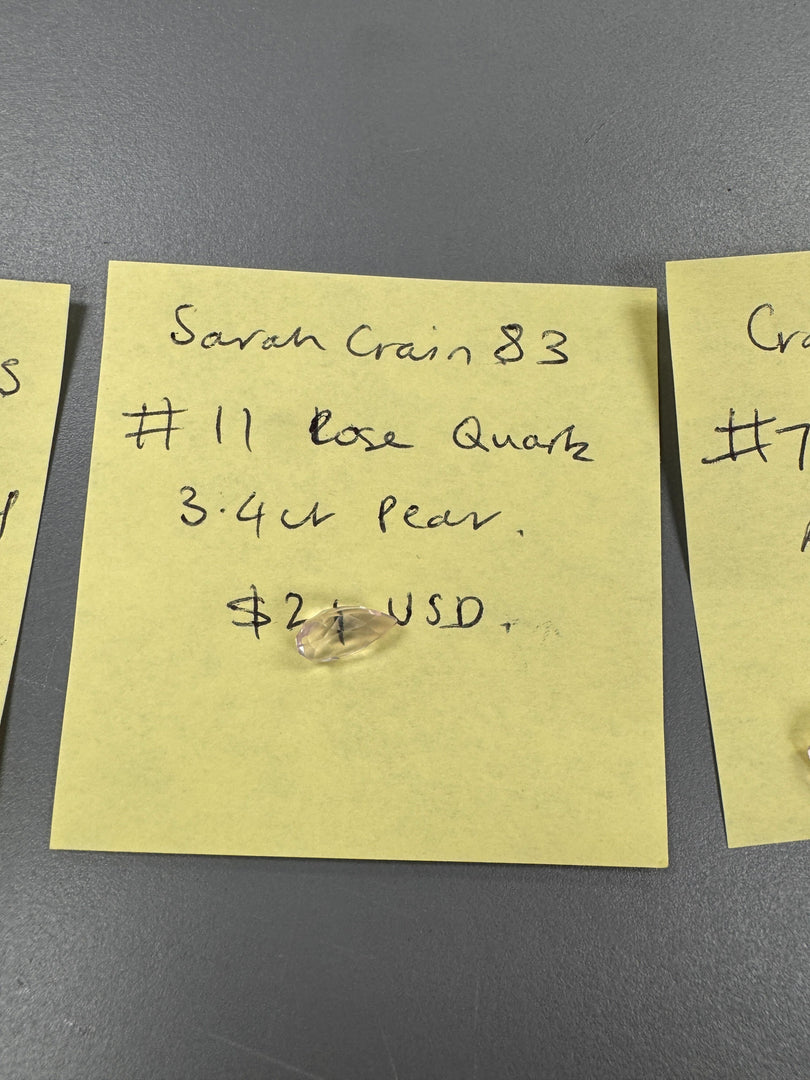 Sarah Crain 83
#11 Rose Quartz
3.4ct Pear.
USD.
s
Cra
#7